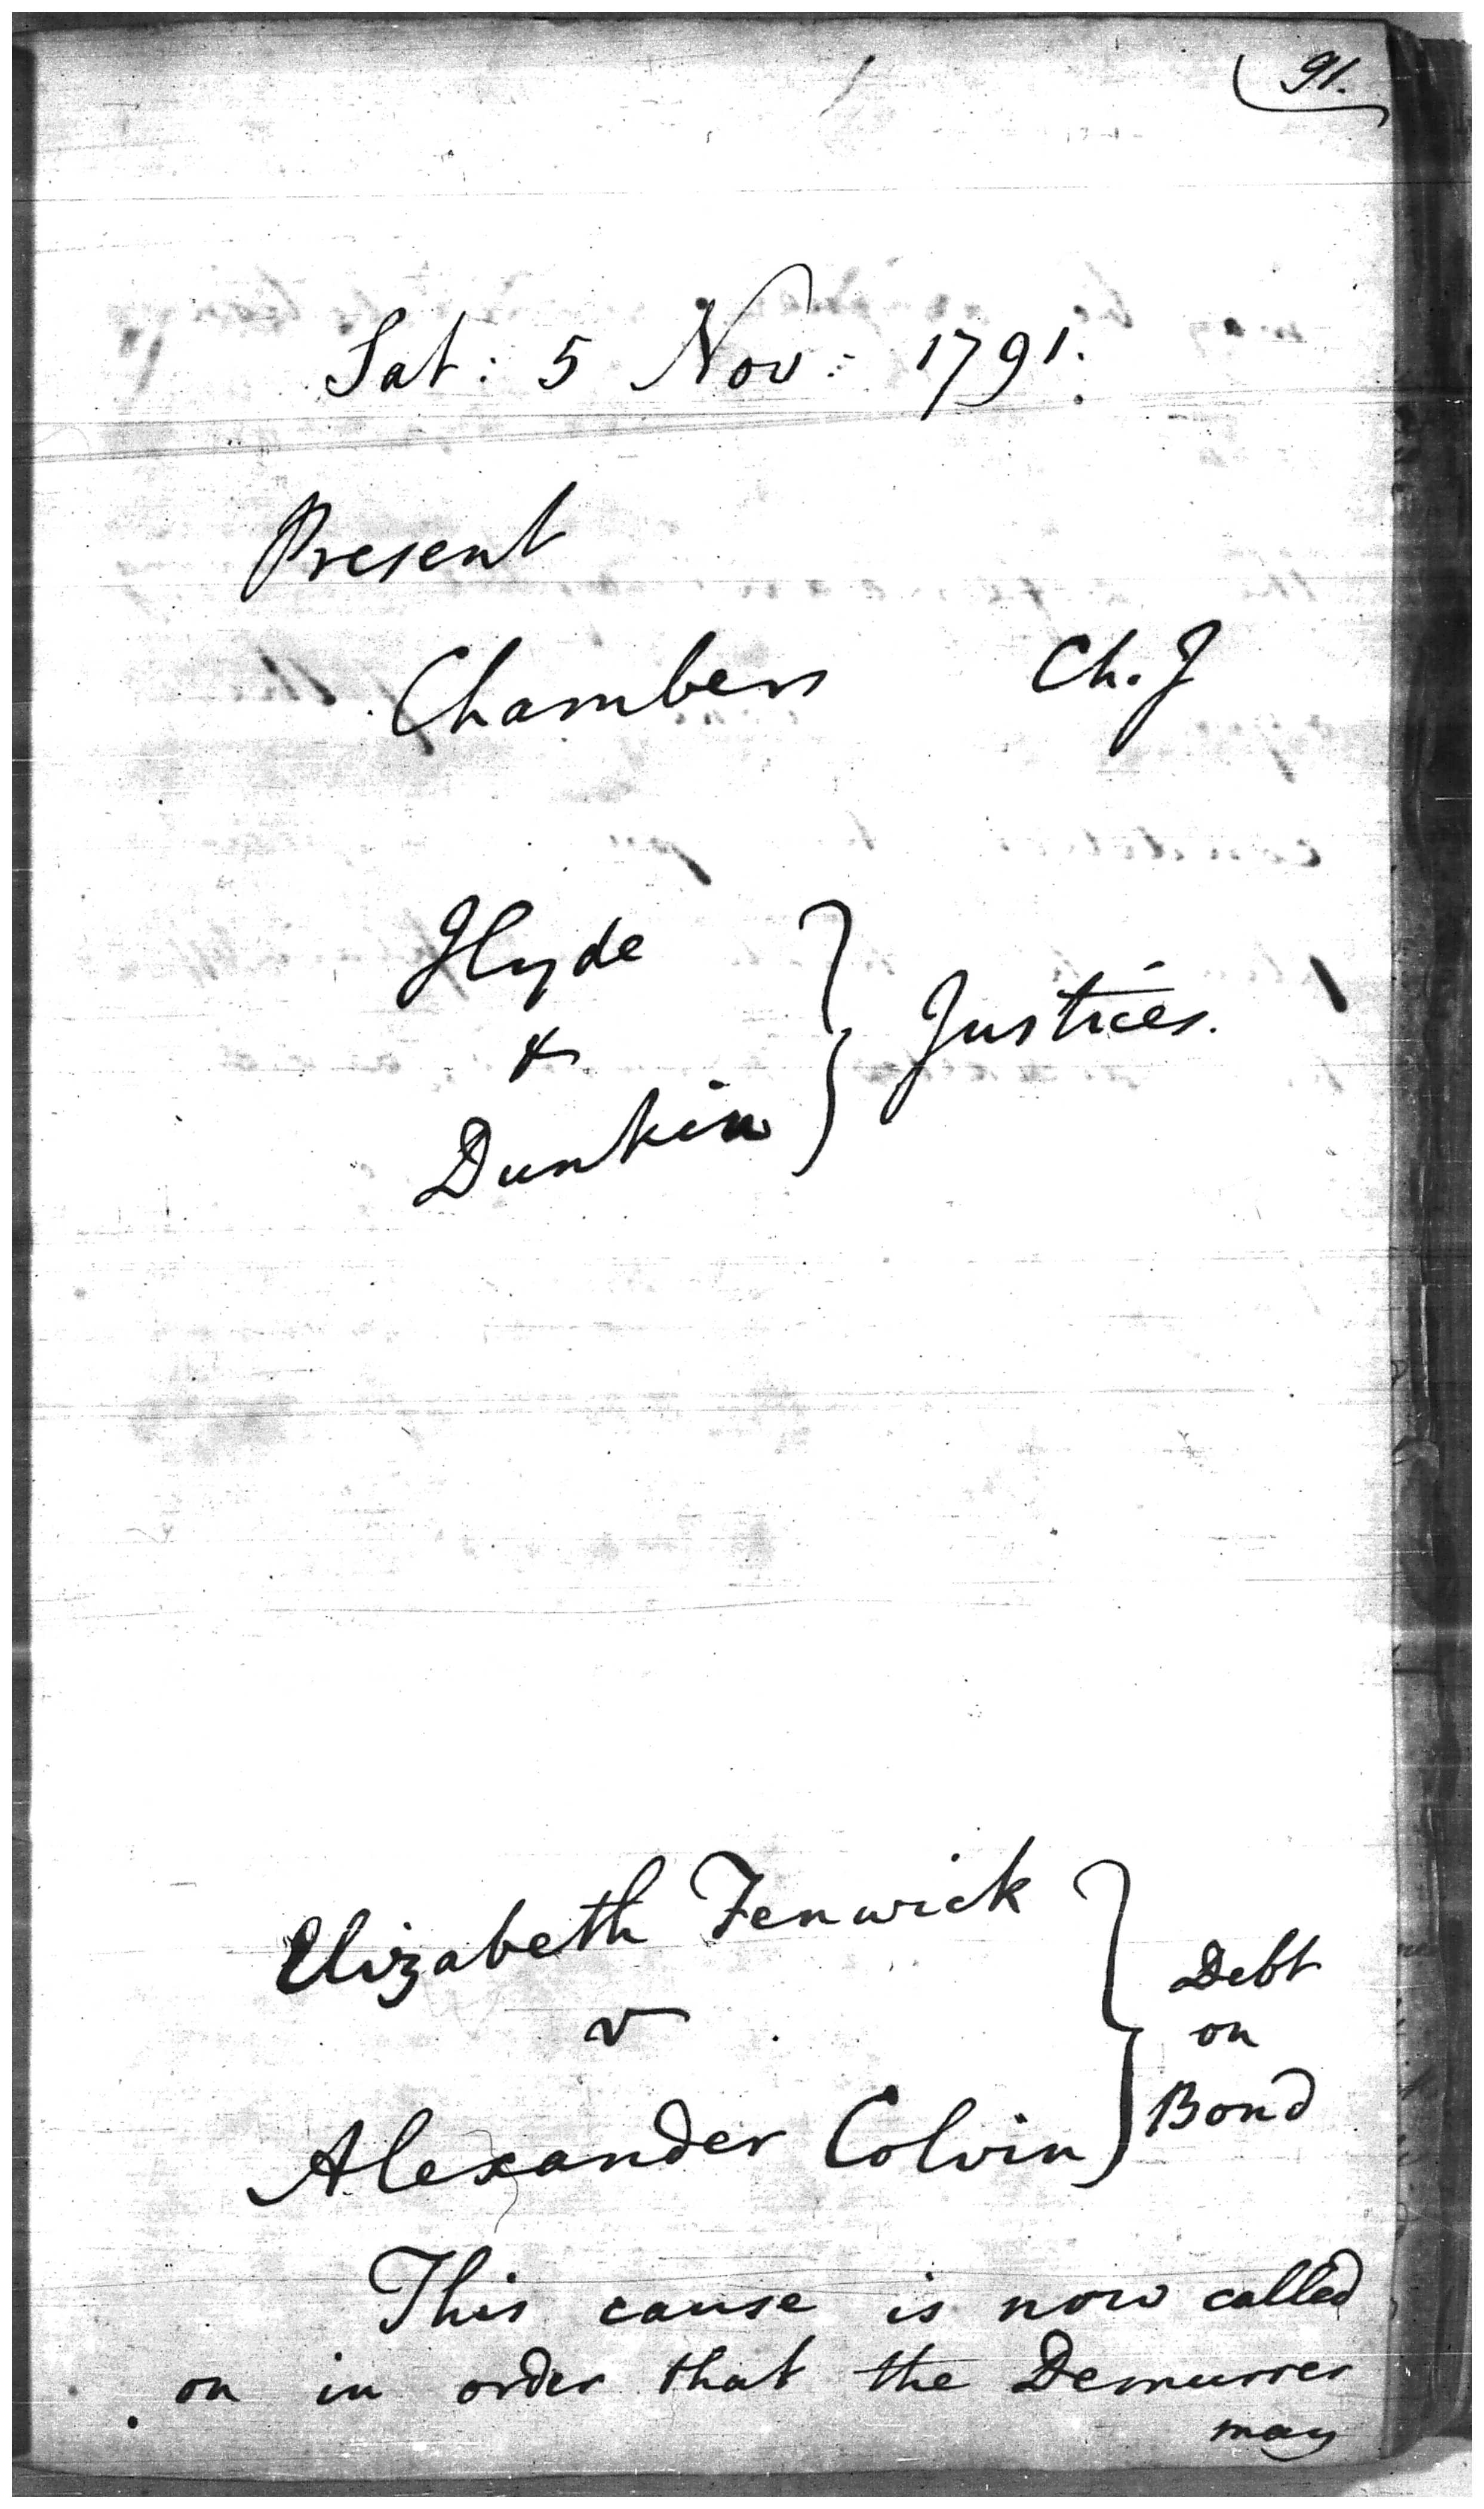 91.
Sat: 5 Nov: 1791.
Present
Chambers Ch. J
Hyde
&
Dunkin } Justices.
Elizabeth Fenwick
v
Alexander Colvin } Debt
on
Bond
This cause is now called
on in order that the Demurrer
may